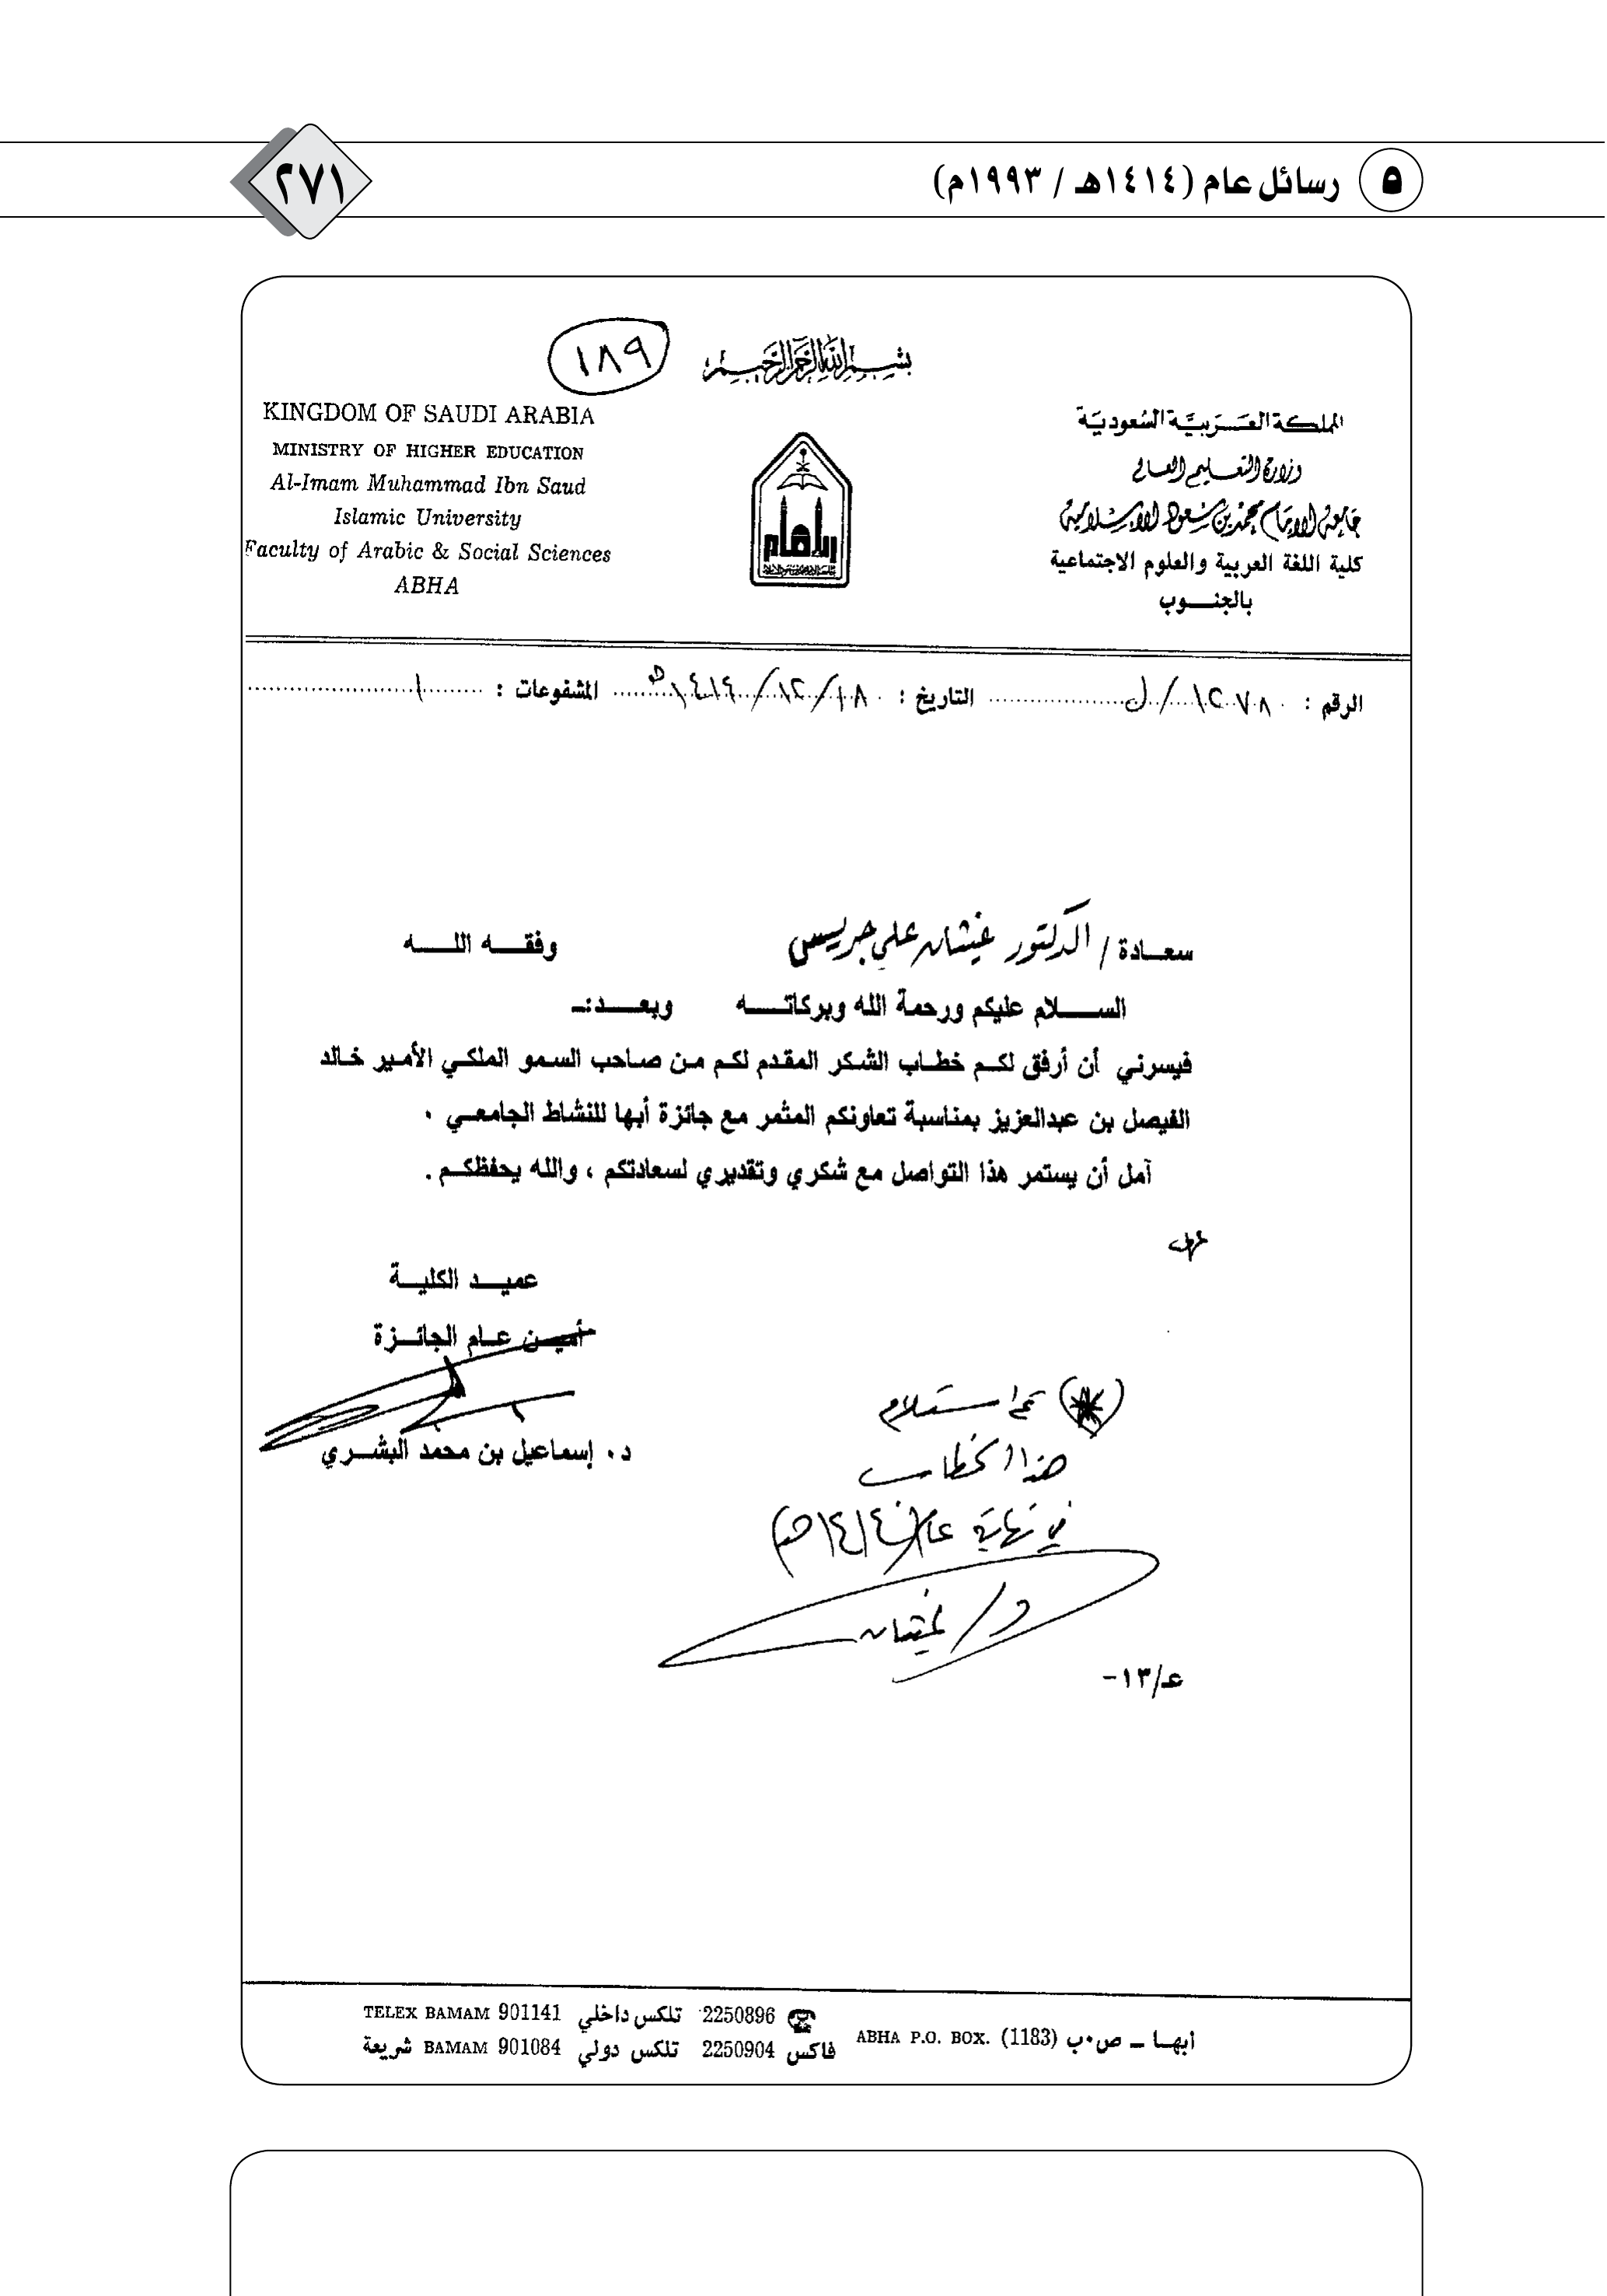 ٥ رسائل عام (١٤١٤هـ / ١٩٩٣م)
٢٧١
١٨٩
بسم الله الرحمن الرحيم
المملكة العربية السعودية
وزارة التعليم العالي
جامعة الإمام محمد بن سعود الإسلامية
كلية اللغة العربية والعلوم الاجتماعية
بالجنـــوب
KINGDOM OF SAUDI ARABIA
MINISTRY OF HIGHER EDUCATION
Al-Imam Muhammad Ibn Saud
Islamic University
Faculty of Arabic & Social Sciences
ABHA
الرقم : ١٢٧٨/ل التاريخ : ١٨/١٢/١٤١٤هـ المشفوعات : ١
سعـــادة / الدكتور غيثان علي جريس وفقـــه اللـــــه
الســــــلام عليكم ورحمة الله وبركاتــــــه وبعـــــد:ــ
فيسرني أن أرفق لكـم خطـاب الشكر المقدم لكـم مـن صـاحب السمـو الملكـي الأمـير خـالد
الفيصل بن عبدالعزيز بمناسبة تعاونكم المثمر مع جائزة أبها للنشاط الجامعـي .
آمل أن يستمر هذا التواصل مع شكري وتقديري لسعادتكم ، والله يحفظكــم .
عميـــد الكليـــة
أميـــن عــام الجائـــزة
د. إسماعيل بن محمد البشـــري
تم استلام
هذا الخطاب
في نهاية عام (١٤١٤هـ)
د/ غيثان
عـ/١٣-
ابهـــا ــ ص.ب (1183) ABHA P.O. BOX.
☎ 2250896 تلكس داخلي 901141 TELEX BAMAM
فاكس 2250904 تلكس دولي 901084 BAMAM شريعة